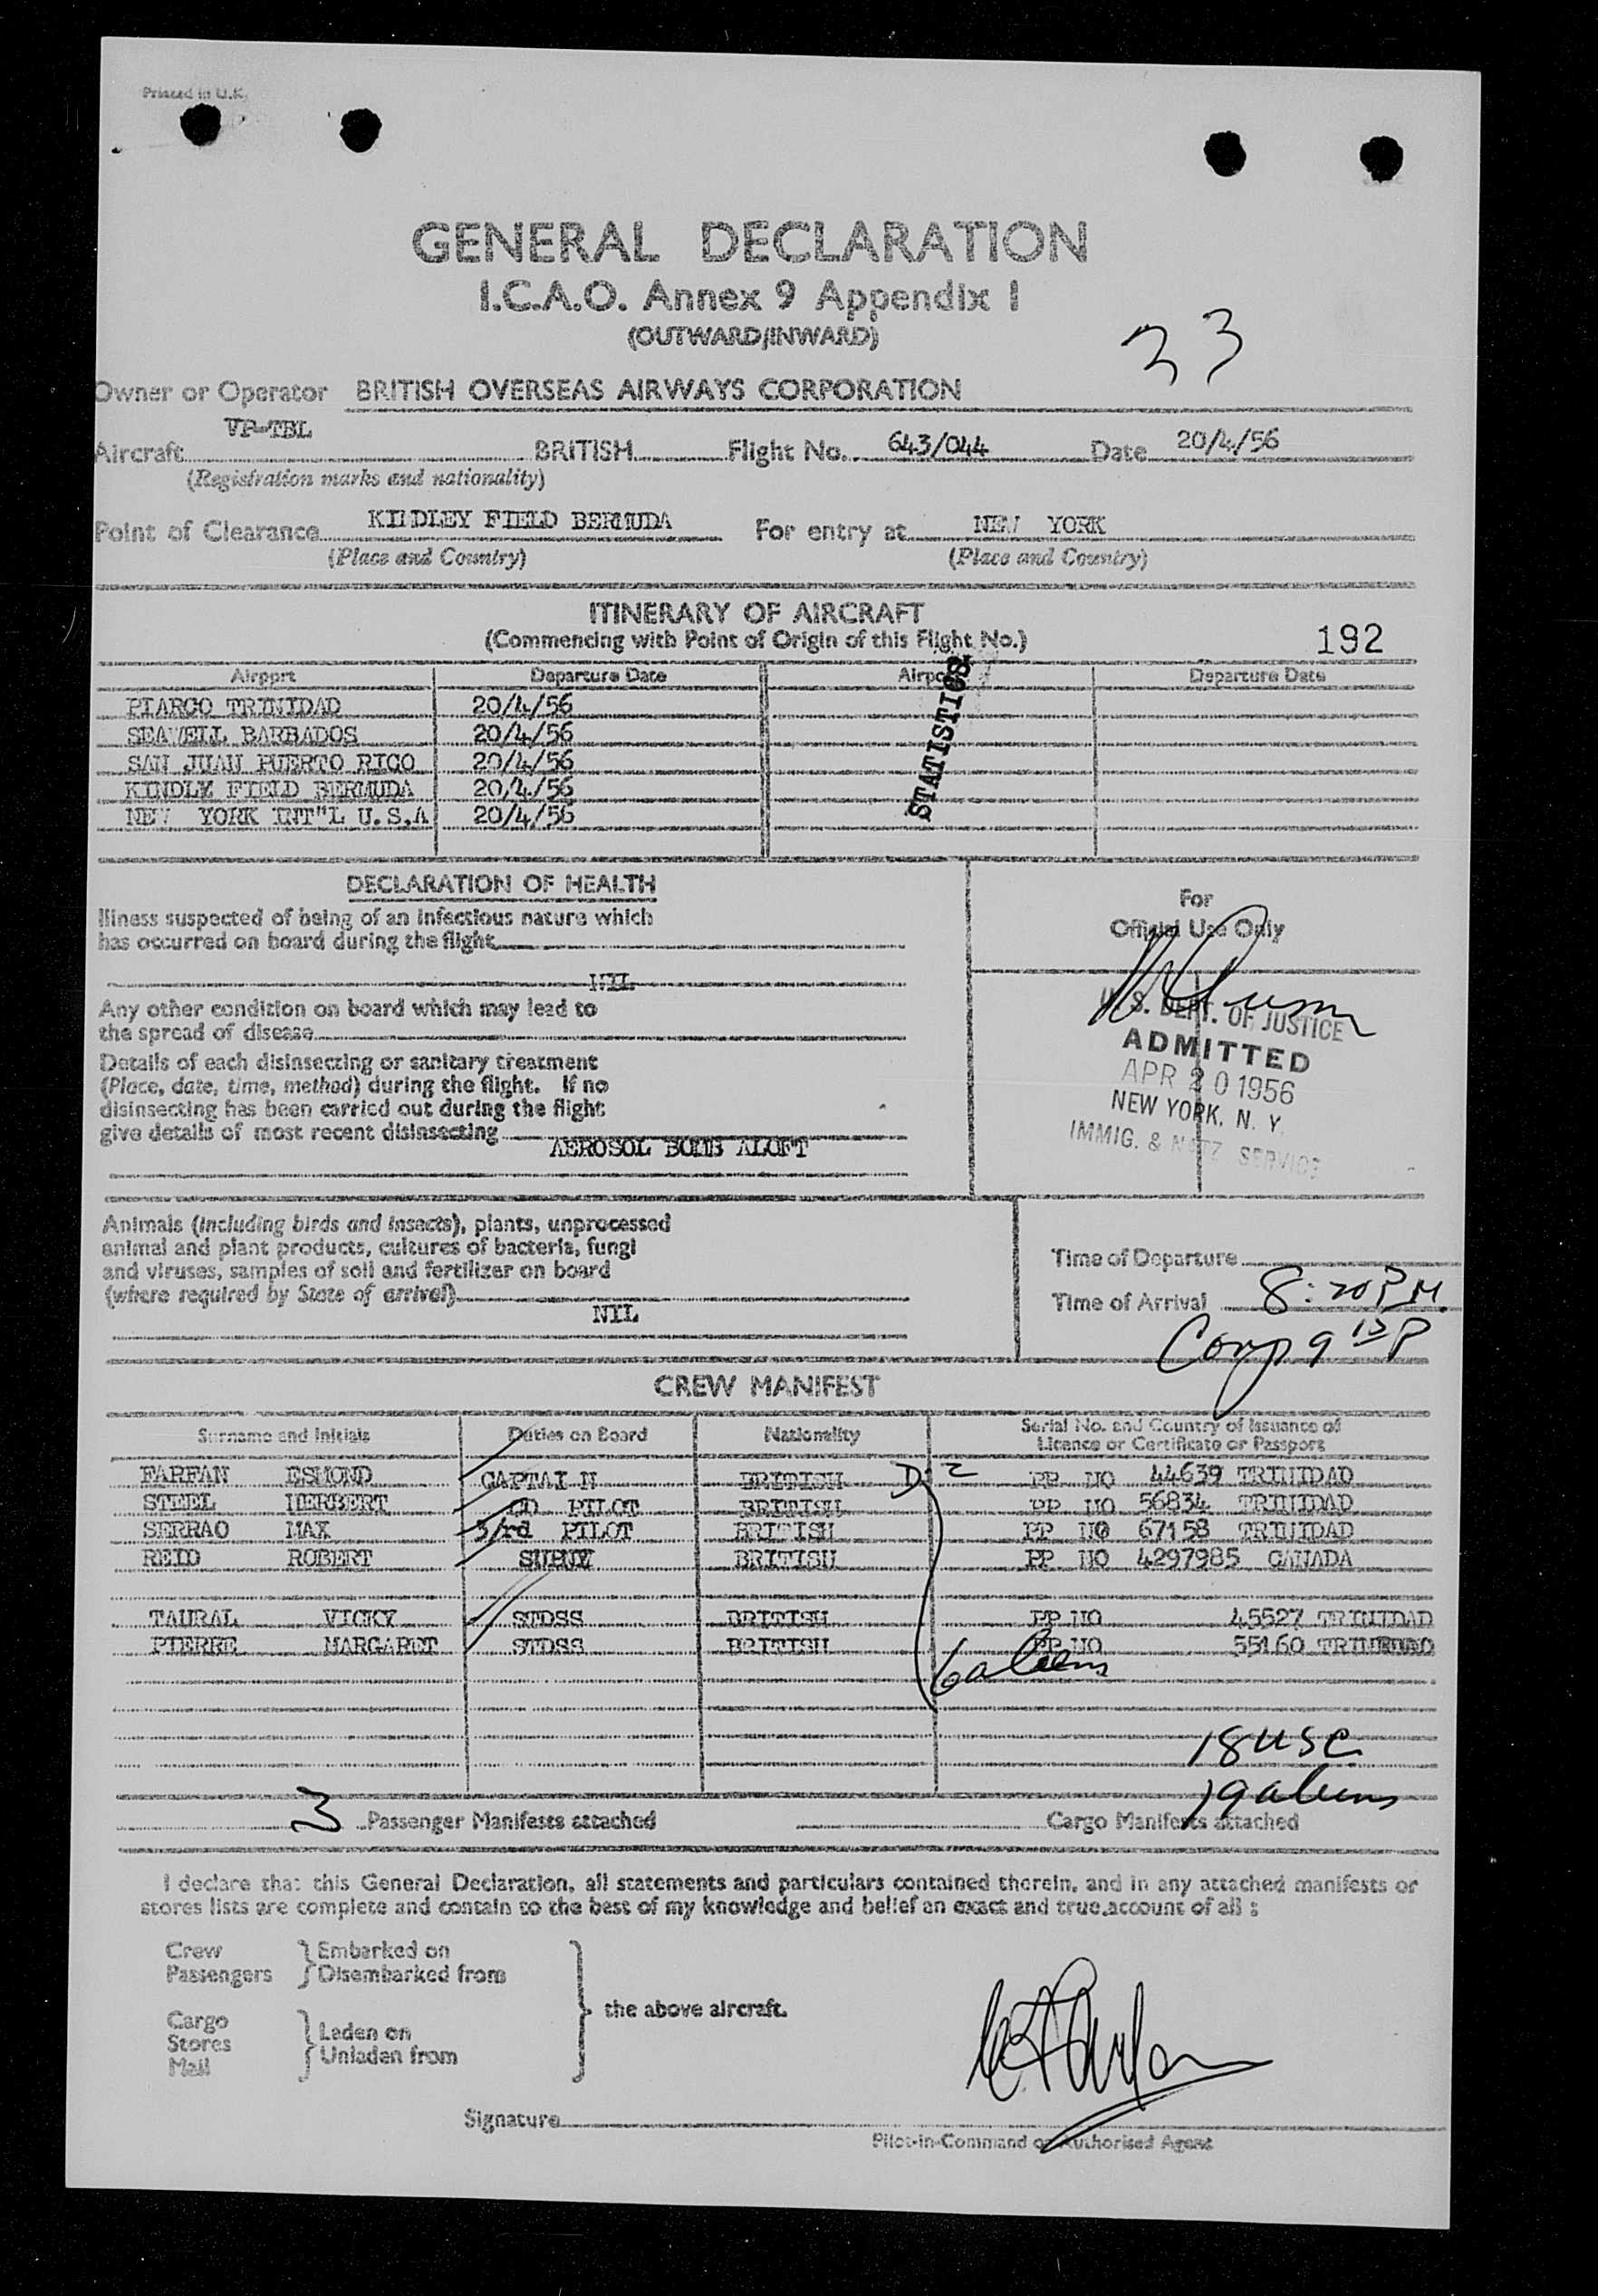 Printed in U.K.
GENERAL DECLARATION
I.C.A.O. Annex 9 Appendix I
(OUTWARD/INWARD)
33
Owner or Operator BRITISH OVERSEAS AIRWAYS CORPORATION
VP-TBL
Aircraft BRITISH Flight No. 643/044 Date 20/4/56
(Registration marks and nationality)
Point of Clearance KINDLEY FIELD BERMUDA For entry at NEW YORK
(Place and Country) (Place and Country)
ITINERARY OF AIRCRAFT
(Commencing with Point of Origin of this Flight No.) 192
Airport Departure Date Airport Departure Date
PIARCO TRINIDAD 20/4/56
SEAWELL BARBADOS 20/4/56
SAN JUAN PUERTO RICO 20/4/56
KINDLY FIELD BERMUDA 20/4/56
NEW YORK INT"L U.S.A 20/4/56
STATISTICS
DECLARATION OF HEALTH
Illness suspected of being of an infectious nature which
has occurred on board during the flight
NIL
Any other condition on board which may lead to
the spread of disease
Details of each disinsecting or sanitary treatment
(Place, date, time, method) during the flight. If no
disinsecting has been carried out during the flight
give details of most recent disinsecting
AEROSOL BOMB ALOFT
For
Official Use Only
U.S. DEPT. OF JUSTICE
ADMITTED
APR 20 1956
NEW YORK, N. Y.
IMMIG. & NATZ SERVICE
Animals (including birds and insects), plants, unprocessed
animal and plant products, cultures of bacteria, fungi
and viruses, samples of soil and fertilizer on board
(where required by State of arrival)
NIL
Time of Departure
Time of Arrival 8:20 PM.
Comp 9 15 P
CREW MANIFEST
Surname and Initials Duties on Board Nationality Serial No. and Country of Issuance of
Licence or Certificate or Passport
FARFAN ESMOND CAPTAIN BRITISH D 2 PP NO 44639 TRINIDAD
STEEL HERBERT CO PILOT BRITISH PP NO 56834 TRINIDAD
SERRAO MAX 3/rd PILOT BRITISH PP NO 67158 TRINIDAD
REID ROBERT SUPNY BRITISH PP NO 4297985 CANADA
TAURAL VICKY STDSS BRITISH PP NO 45527 TRINIDAD
PIERRE MARGARET STDSS BRITISH PP NO 55160 TRINIDAD
6 aliens
18 USC
19 aliens
3 Passenger Manifests attached Cargo Manifests attached
I declare that this General Declaration, all statements and particulars contained therein, and in any attached manifests or
stores lists are complete and contain to the best of my knowledge and belief an exact and true account of all :
Crew Embarked on
Passengers Disembarked from
the above aircraft.
Cargo
Stores Laden on
Mail Unladen from
Signature
Pilot-in-Command or Authorised Agent